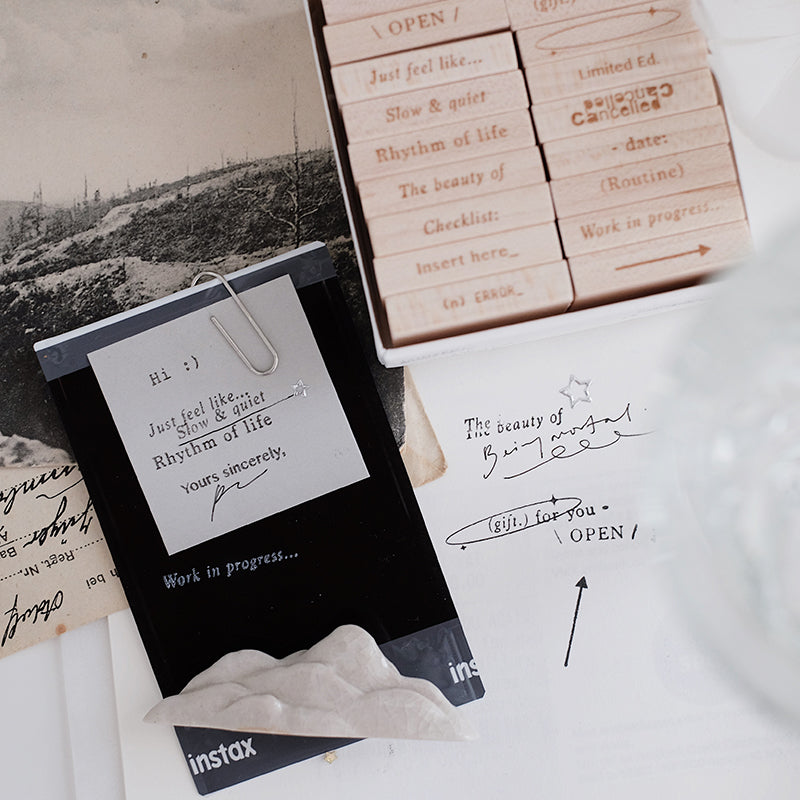 \ OPEN /
Just feel like...
Slow & quiet
Rhythm of life
The beauty of
Checklist:
Insert here_
(n) ERROR_
(gift.)
Limited Ed.
Cancelled
Cancelled
- date:
(Routine)
Work in progress...
Hi :)
Just feel like...
Slow & quiet
Rhythm of life
Yours sincerely,
Work in progress...
instax
ins
The beauty of
Being mortal.
(gift.) for you -
\ OPEN /
Regt. Nr.
bei